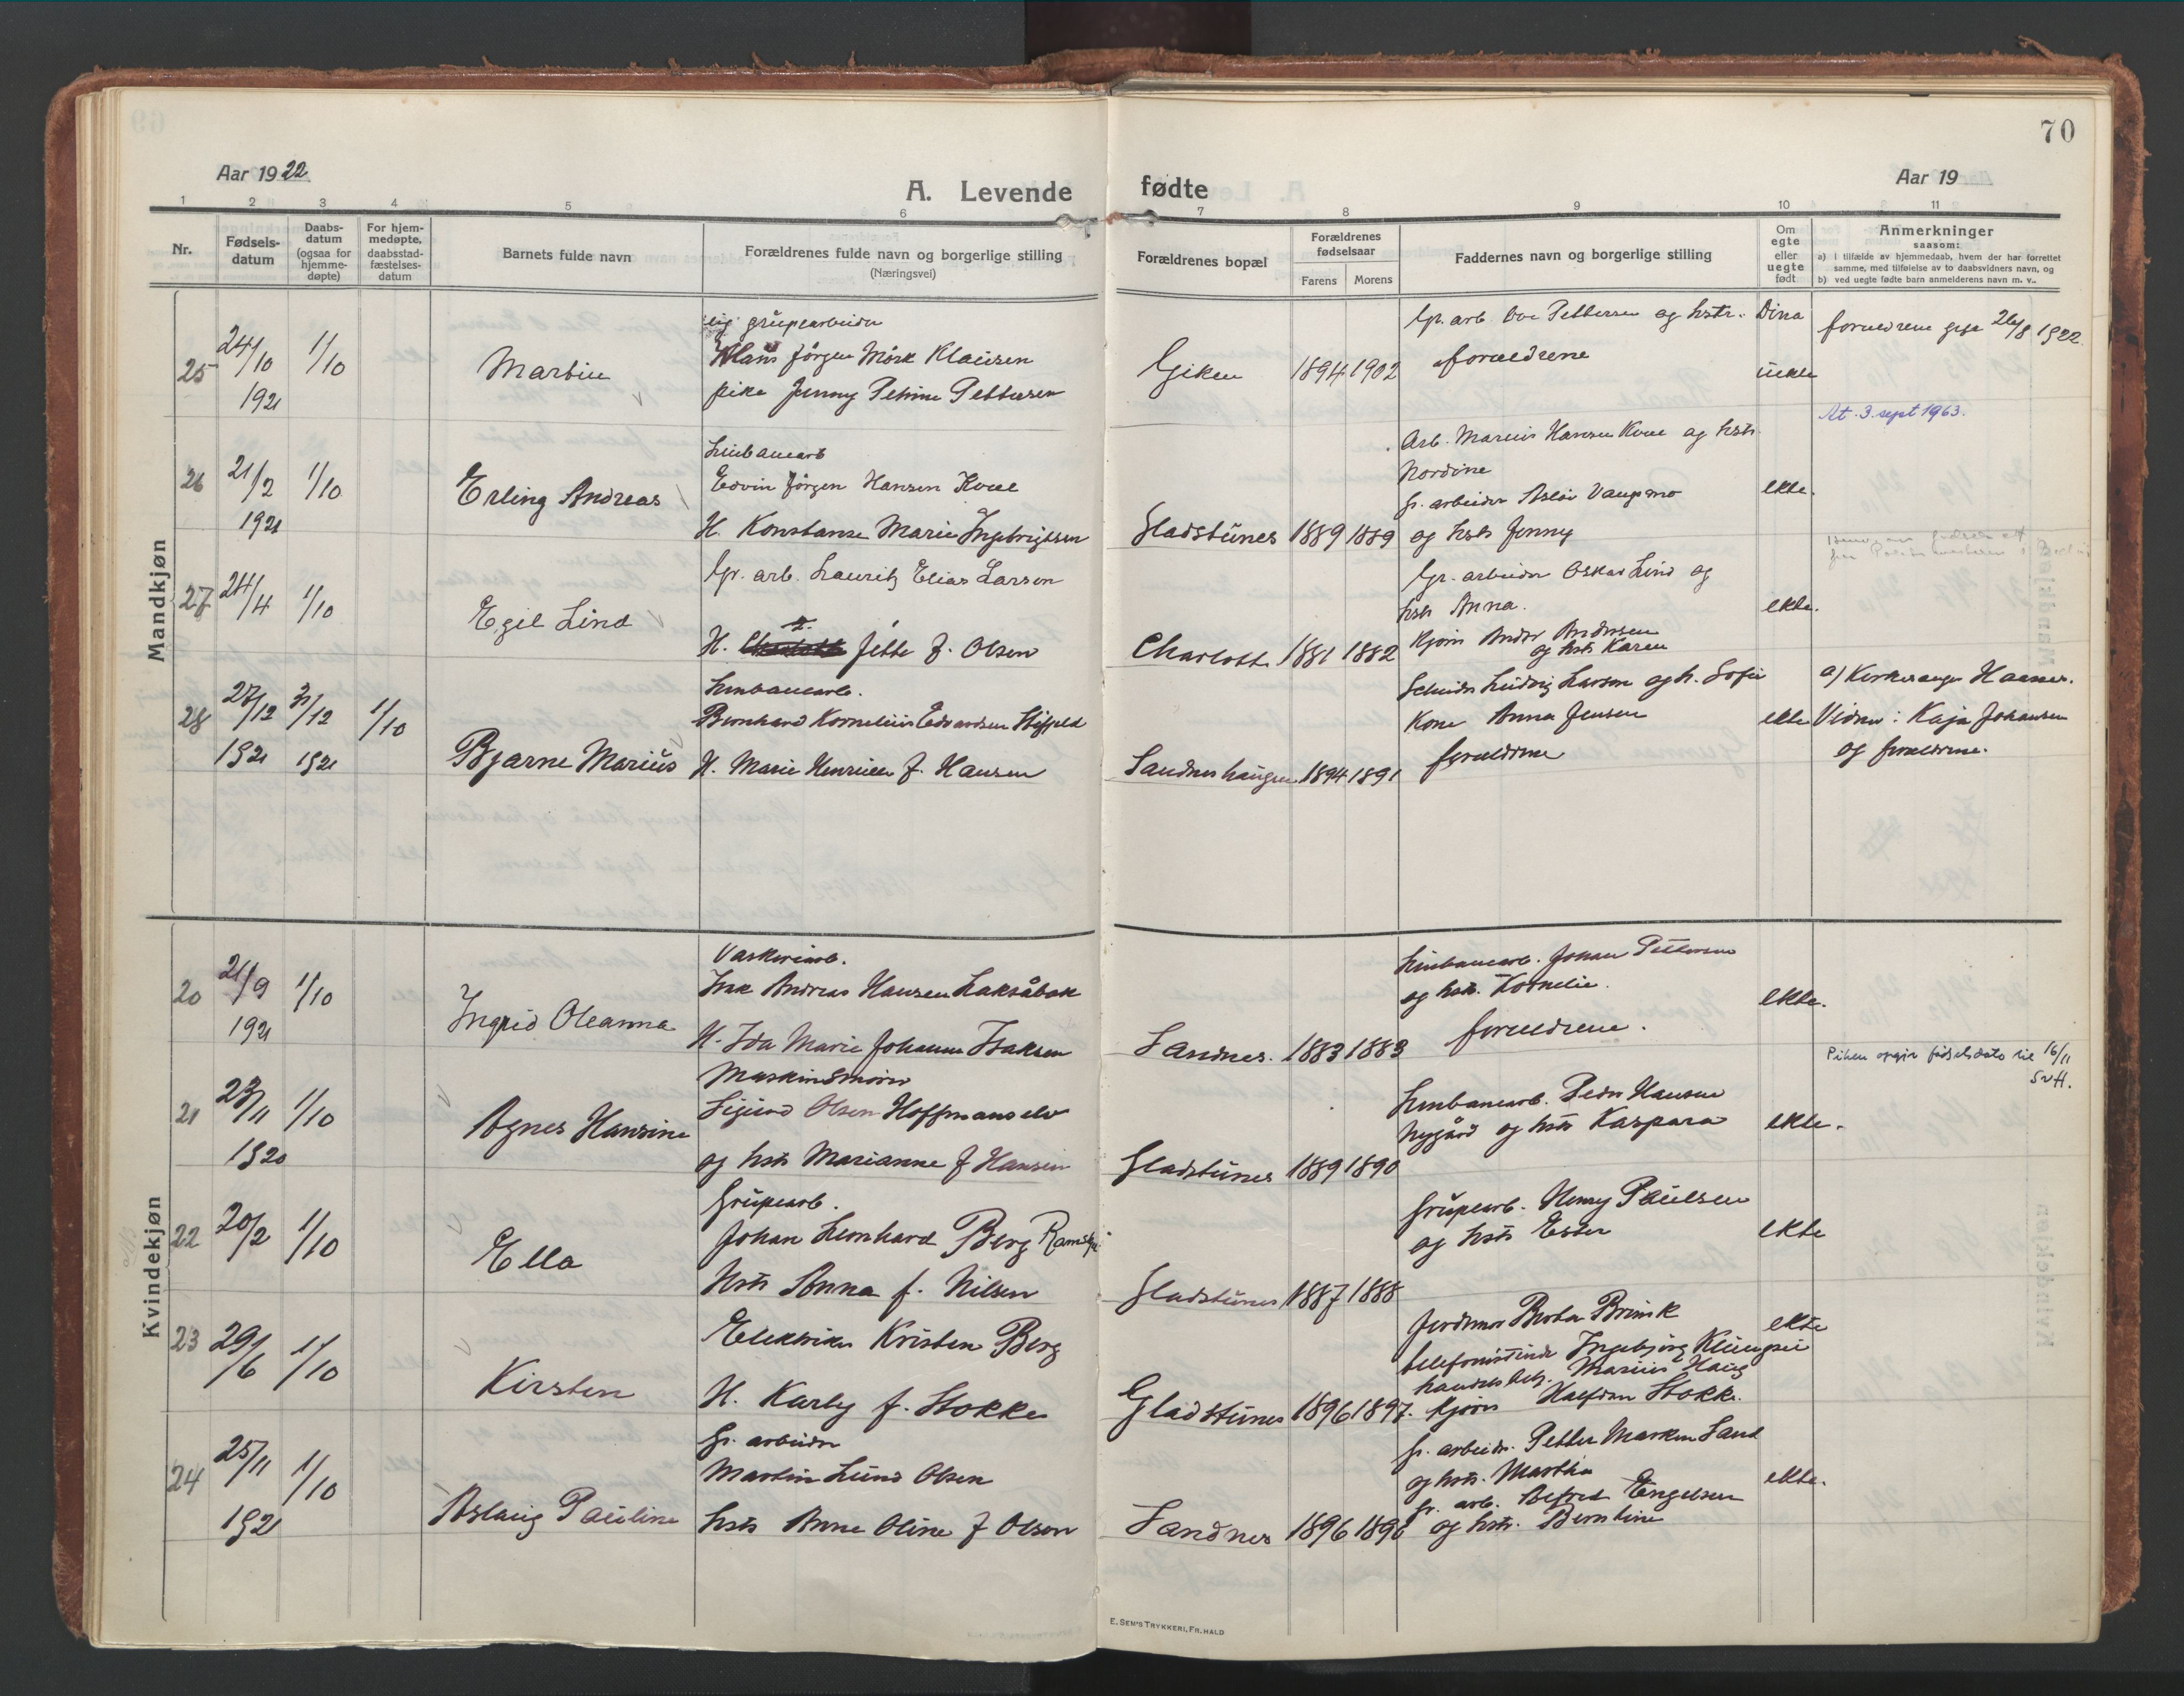 70
Aar 1922
A. Levende
fødte
Aar 19
1 2 3 4 5 6 7 8 9 10 11
Nr.
Fødsels-
datum
Daabs-
datum
(ogsaa for
hjemme-
døpte)
For hjem-
medøpte,
daabsstad-
fæstelses-
datum
Barnets fulde navn
Forældrenes fulde navn og borgerlige stilling
(Næringsvei)
Forældrenes bopæl
Forældrenes
fødselsaar
Farens Morens
Faddernes navn og borgerlige stilling
Om
egte
eller
uegte
født
Anmerkninger
saasom:
a) i tilfælde av hjemmedaab, hvem der har forrettet
samme, med tilføielse av to daabsvidners navn, og
b) ved uegte fødte barn anmelderens navn m. v.
Mandkjøn
25
24/10
1921
1/10
Martin
grubearbeider
Klaus Jörgen Mörk Klausen
pike Jenny Petrine Pettersen
Giken
1894 1902
Gr. arb. Ove Pettersen og hstr. Dina
foreldrene
uekte
foreldrene gift 26/8 1922.
At. 3. sept 1963.
26
21/2
1921
1/10
Erling Andreas
Linbanearb
Edvin Jörgen Hansen Kvæl
H. Konstanse Marie Ingebrigtsen
Gladstunes
1889 1889
Arb. Marius Hansen Kvæl og hstr.
Nordine
gr. arbeider Aslöi Vangsmo
og hstr Jenny
ekte.
27
24/4
1/10
Egil Lind
Gr. arb. Lauritz Elias Larsen
H. Jette f. Olsen
Charlotte
1881 1882
Gr. arbeider Oskar Lind og
hstr Anna.
Kjörer Andor Andersen
og hstr Karen
ekte.
28
27/12
1921
31/12
1921
1/10
Bjarne Marius
Linbanearb.
Bernhard Kornelius Edvardsen
H. Marie Henrikke f. Hansen
Sandneshaugen
1894 1891
Ludvig Larsen og h. Sofie
Kone Anna Jensen
foreldrene
ekte
a) Kirkesanger Hasner.
Vidner: Kaja Johansen
og foreldrene.
Kvindekjøn
20
21/9
1921
1/10
Ingrid Oleanna
Vaskeriarb.
Isak Andreas Hansen Laksåbak
H. Ida Marie Johanne Isaksen
Sandnes.
1883 1883
Linbanearb. Johan Pettersen
og hstr. Kornelie.
foreldrene.
ekte.
21
23/11
1920
1/10
Agnes Hansine
Maskinsmörer
Sigurd Olsen Hoffmanselv
og hstr Marianne f Hansen
Gladstunes
1889 1890
Linbanearb. Peder Hansen
Nygård og hstr Kaspara
ekte.
Piken opgir fødselsdato til 16/11
SvH.
22
20/2
1/10
Ella
Grubearb.
Johan Leonhard Berg
Hstr Anna f. Nilsen
Gladstunes
1887 1888
Grubearb. Henry Paulsen
og hstr Ester
ekte
23
29/6
1/10
Kirsten
Elektriker Kristen Berg
H. Karly f. Stokke
Gladstunes
1896 1897.
Jordmor Berta Brinsk
telefonistinde Ingebjörg
handelsbetj. Marius Haug
kjörer Halfdan Stokke.
ekte
24
25/11
1921
1/10
Aslaug Pauline
Gr. arbeider
Martin Lund Olsen
hstr Anne Oline f Olsen
Sandnes
1896 1896
gr. arbeider. Petter Marken Sand
og hstr. Martha
gr. arb. Alfred Engelsen
og hstr. Berntine
ekte.
E. SEM'S TRYKKERI, FR.HALD